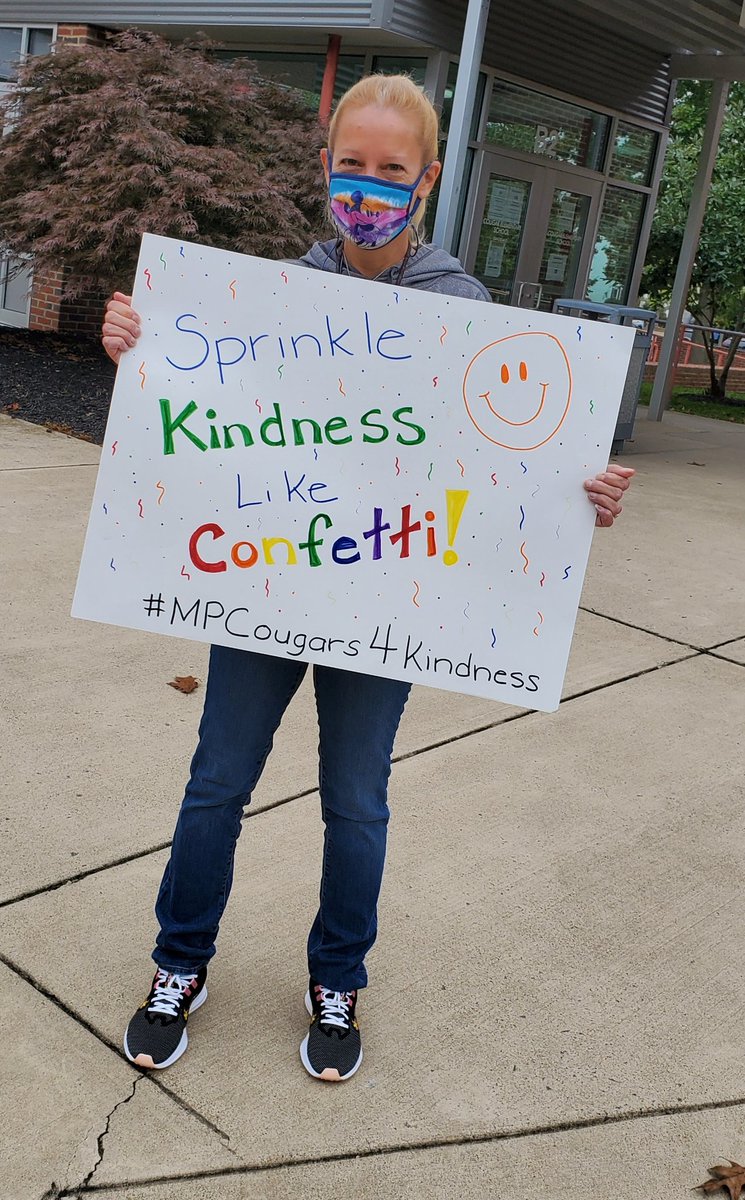 B2
Sprinkle
Kindness
Like
Confetti!
#MPCougars4Kindness